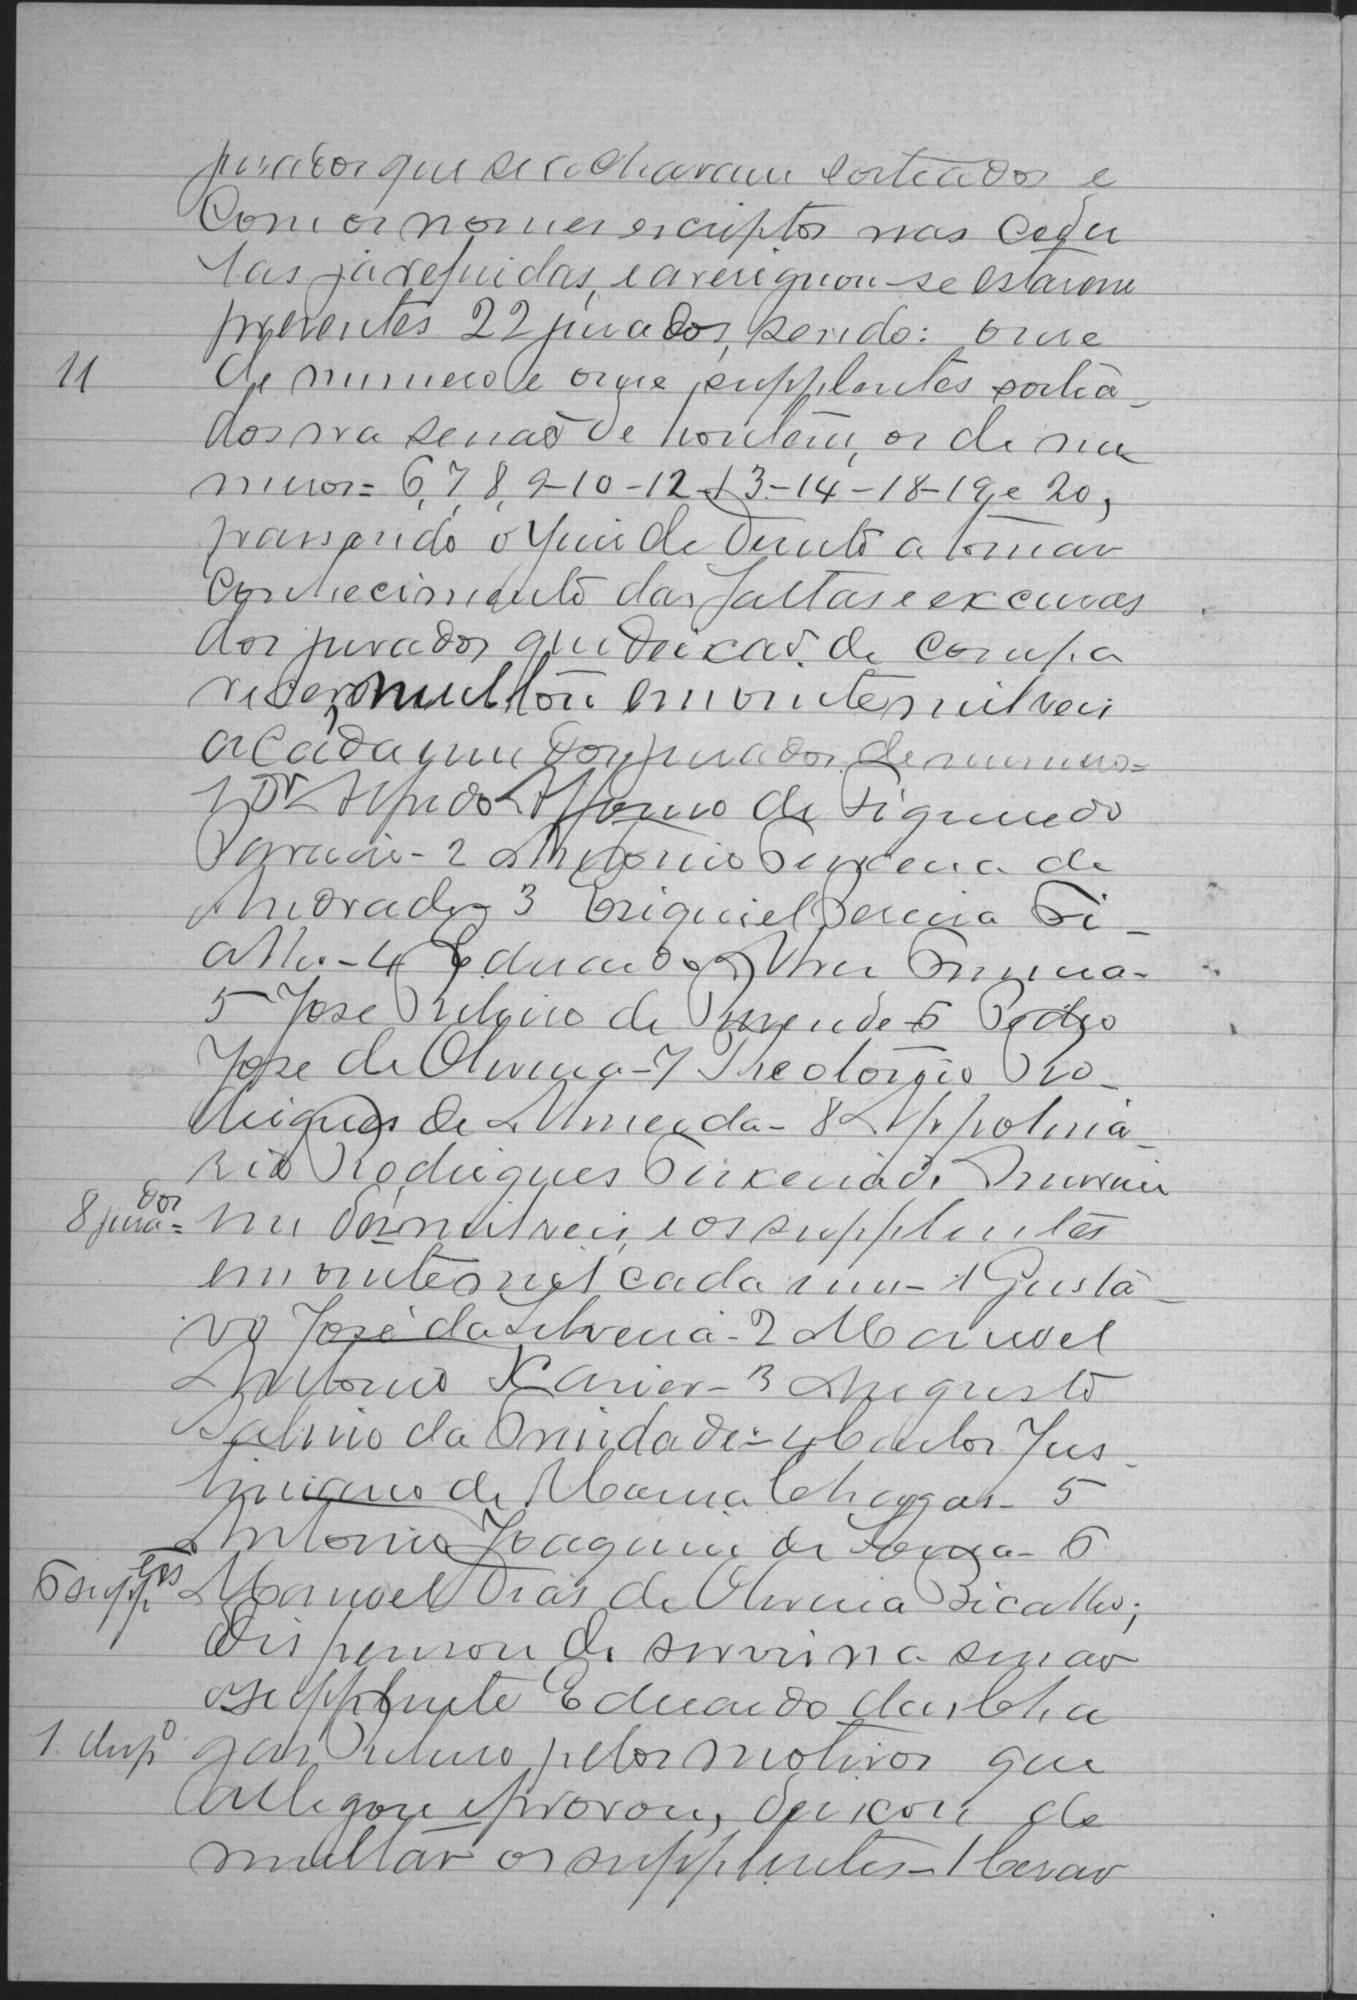 jurados que se achavam sorteados e
com os nomes escriptos nas cedu
las já referidas, e averiguou-se estarem
presentes 22 jurados, sendo: onze
11 de numero e onze supplentes sortea-
dos na sessaõ de hontem, os de nu
meros= 6, 7, 8, 9-10-12-13-14-18-19, e 20,
passando o Juiz de Direito a tomar
conhecimento das faltas e excusas
dos jurados que deixaõ de compa
recer, multou em vinte mil reis
a cada um dos jurados de numero=
1 Dr Alfredo Affonso de Figueiredo
- 2 Antonio Teixeira de
Andrade- 3 Ezequiel Pereira Fi-
alho- 4 Eduardo Alves
5 José Ribeiro de Rezende- 6 Pedro
José de Oliveira- 7 Theotonio Ro-
drigues de Almeida- 8 Appolina-
rio Rodrigues Teixeira de
8 jurados=
mil reis, e os supplentes
em vinte mil cada um- 1 Gusta-
vo José da Silveira- 2 Manoel
Antonio Xavier- 3 Augusto
Salvino da Trindade- 4 Carlos Jus-
tiniano de Chagas- 5
Antonio Joaquim de Souza- 6
6 suppes Manoel Dias de Oliveira Bicalho;
dispensou de servir na sessaõ
o supplente Eduardo das Cha
1 dispo gas Ribeiro pelos motivos que
allegou e provou, deixou de
multar os supplentes- 1